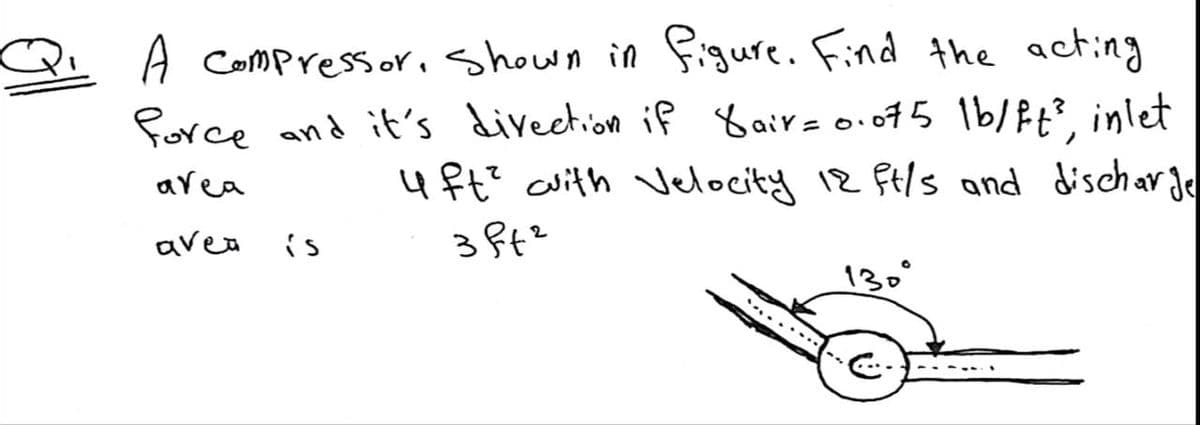 Q. A Compressor. shown in figure. Find the acting
force and it's direction if γair = 0.075 lb/ft³, inlet
area 4 ft² with Velocity 12 ft/s and discharge
area is 3 ft²
130°
C